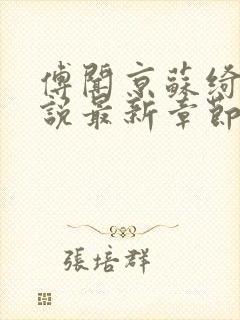 傅聞京蘇綺
說最新章節
張培群